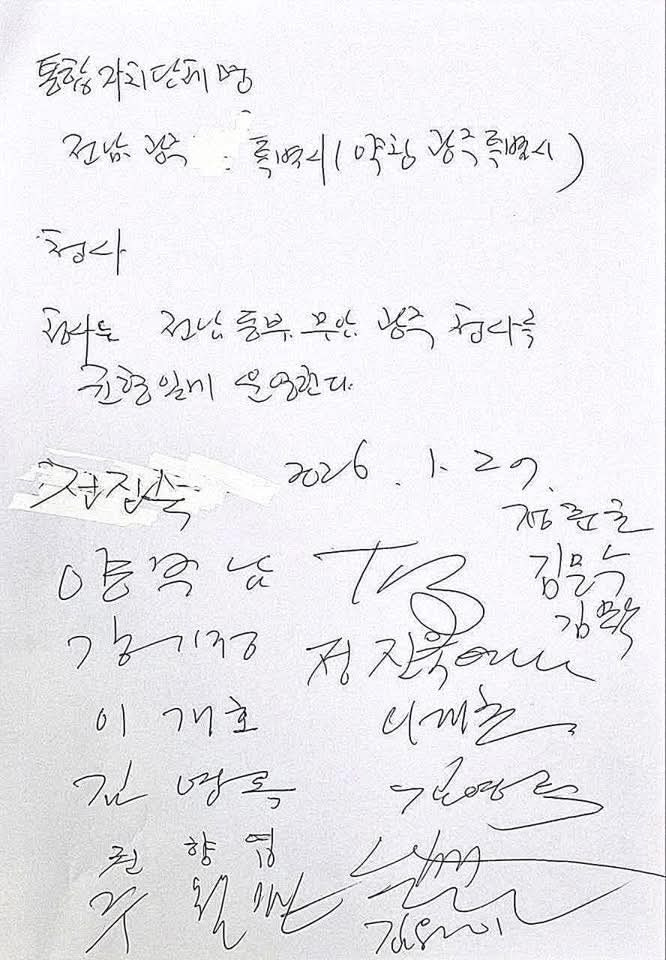 통합자치단체명
전남 광주 특별시 (약칭 광주특별시)
청사
청사는 전남 동부, 무안, 광주 청사를
균형있게 운영한다.
2026. 1. 27.
정준호
양부남
김문수
강기정
정진욱
이개호 이개호
김영록 김영록
권향엽